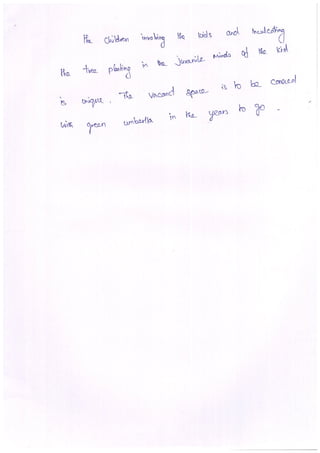 the children involving the kids and inculcating
the tree planting in the juvenile minds of the kid
is unique. The vacant space is to be covered
with green umberlla in the years to go.